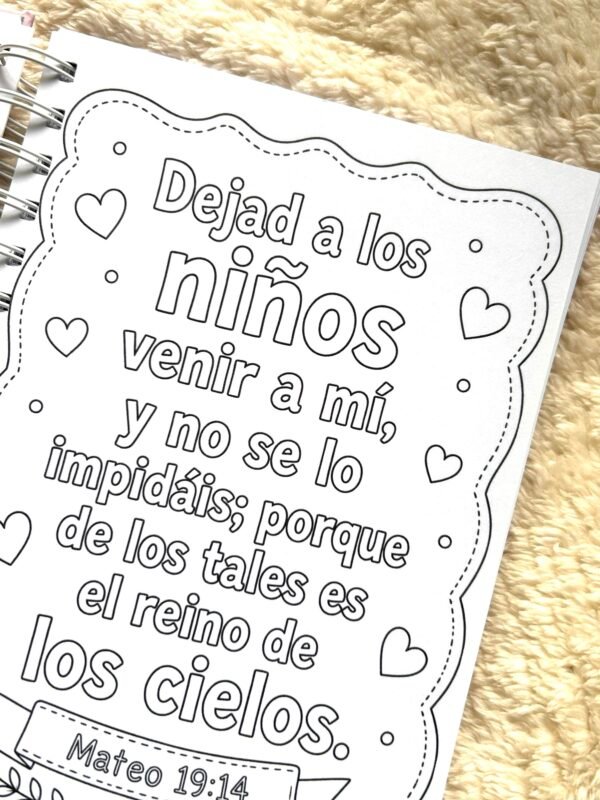 Dejad a los
niños
venir a mí,
y no se lo
impidáis; porque
de los tales es
el reino de
los cielos.
Mateo 19:14